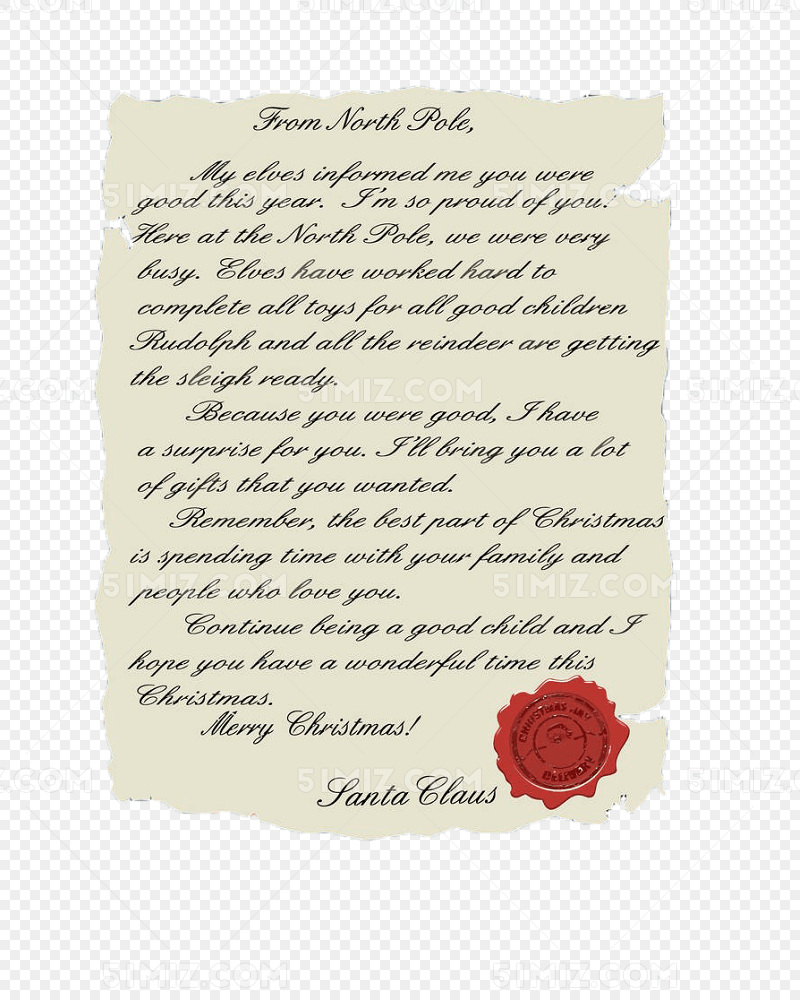 From North Pole,
My elves informed me you were
good this year. I'm so proud of you!
Here at the North Pole, we were very
busy. Elves have worked hard to
complete all toys for all good children
Rudolph and all the reindeer are getting
the sleigh ready.
Because you were good, I have
a surprise for you. I'll bring you a lot
of gifts that you wanted.
Remember, the best part of Christmas
is spending time with your family and
people who love you.
Continue being a good child and I
hope you have a wonderful time this
Christmas.
Merry Christmas!
CHRISTMAS DAY
DELIVERY
Santa Claus
51MIZ.COM